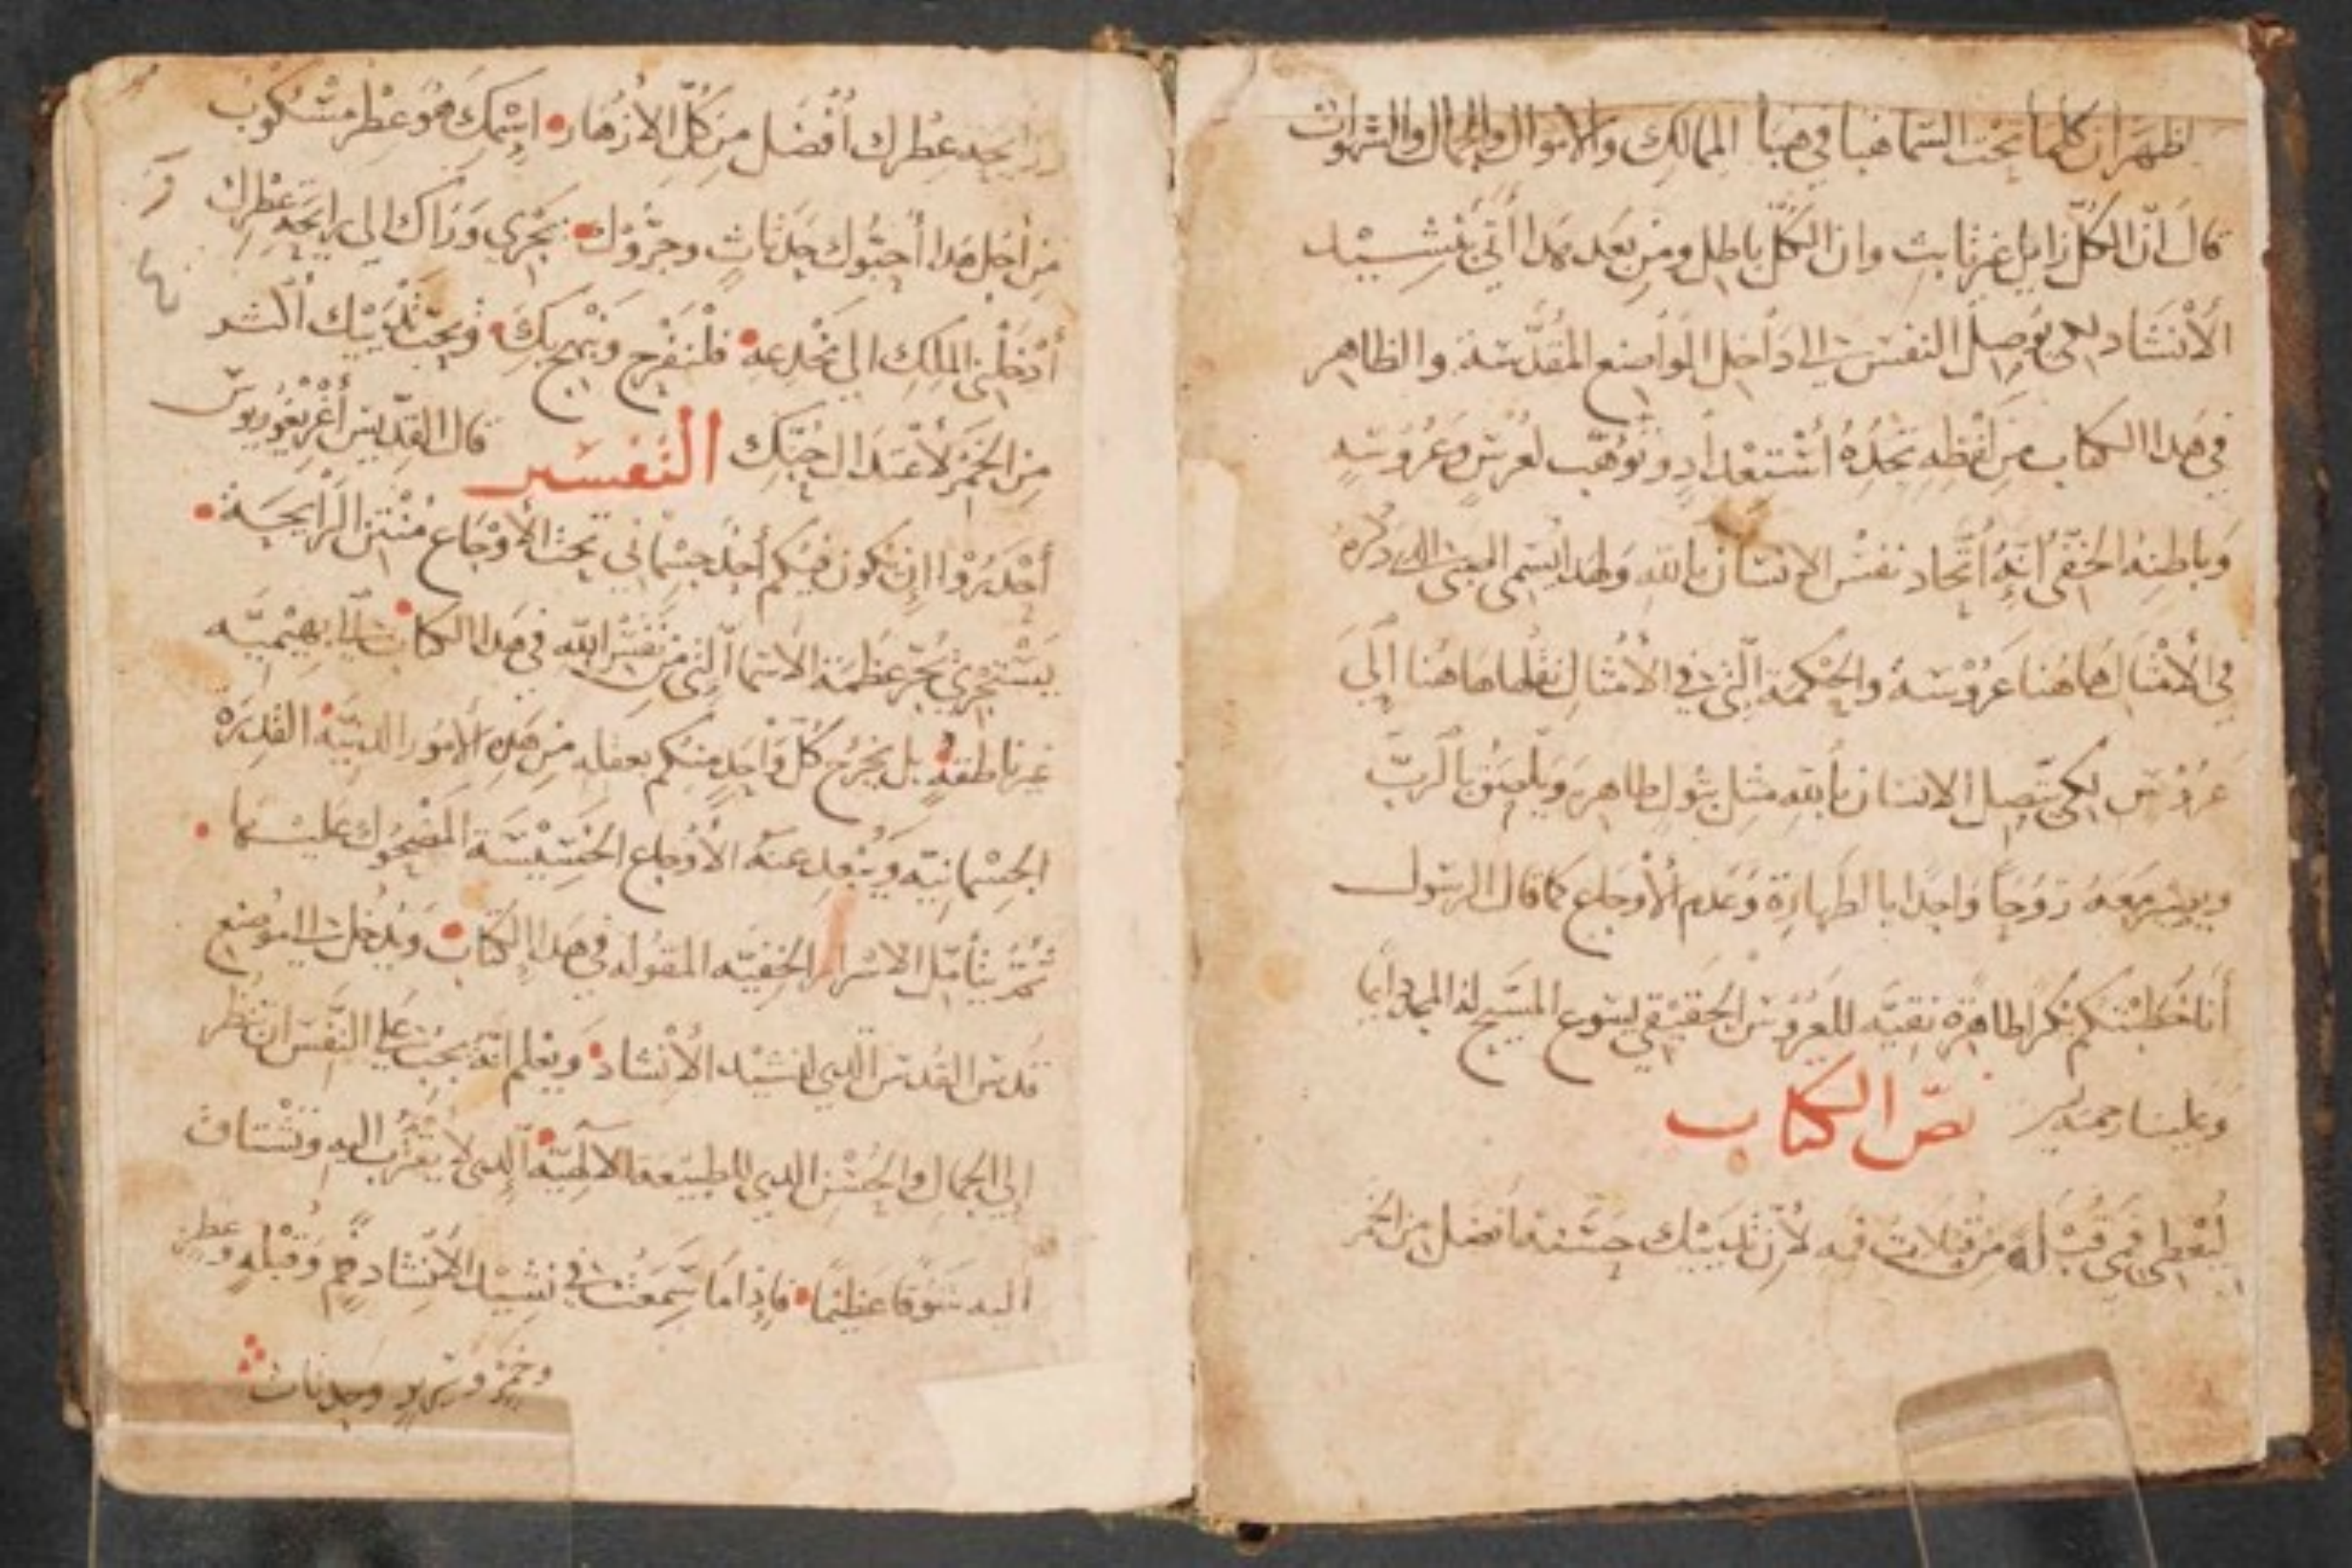 لظهر ان كلما تحت السما هبا في هبا الممالك والاموال والجمال والشهوات
قال انّ الكلّ زايل غير ثابت وان الكلّ باطل ومن بعد هدا أتي بنشيد
الأنشاد لكي يوصل النفس الى داخل المواضع المقدّسة والظاهر
في هدا الكتاب من لفظه تجده اشتعداد وتوهّب لعُرس وعروسه
وباطنه الخفّي انّه اتّحاد نفس الانسان بالله ولهدا يسمى الدى دكره
في الأمثال هاهنا عروسه والحكمة الّتي في الأمثال نقلها هاهنا إلى
عروس لكي يتّصل الانسان بالله مثل بتول طاهره ويلصق بالربّ
ويصير معه روحاً واحدا بالطهارة وعدم الأوجاع كما قال الرسول
أنا خطبتكم بكرا طاهرة نقيّه للعروس الحقيقي يسوع المسيح له المجد دايما
وعلينا رحمته امين نصّ الكتاب
ليُعطي فمي قبله من قبلات فمه لأن ثدييك حسنه افضل من الخمر
رايحة عطرك أفضل من كلّ الأزهار اسمك هو عطر مسكوب
من أجل هدا أحبّوك حدثات وجرّوك نجري وراك الى رايحة عطرك
أدخلني الملك الى مخدعه فلنفرح ونبهج بك ونحبّ ثدييك اكثر
من الخمر لأعتدال حبّك التفسير قال القدّيس أغريغوريوس
أحدروا إن يكون فيكم أحد جسماني تحت الأوجاع منتن الرايحة
يستجري يجر عظمة الاسما التي من نفس الله في هدا الكتاب الى بهيميّه
غير ناطقه بل يخرج كلّ واحد منكم بعقله من هده الأمور الدنيّة القدره
الجسمانيّة ويبعد عنه الأوجاع الخسيسة المضحوك عليها
ثم يتأمّل الاسرار الخفيّه المقوله في هدا الكتاب ويدخل الى موضع
قدس القدس الّدي لنشيد الأنشاد ويعلم انّه يجب على النفس ان تنظر
إلى الجمال والحُسن الدي للطبيعة الالهيّة الدي لا يقترب اليه وتشتاق
اليه شوقا عظيما فإدا ما سمعت في نشيد الأنشاد فم وقبله وعطر
وخمر وسرير وحدثات